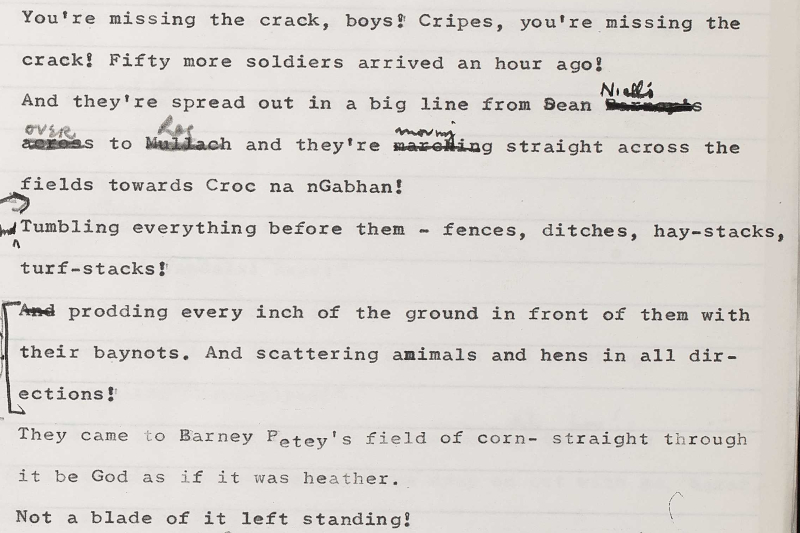 You're missing the crack, boys! Cripes, you're missing the
crack! Fifty more soldiers arrived an hour ago!
Niall's
And they're spread out in a big line from Sean Barney's
over moving
across to Mullach and they're marching straight across the
fields towards Croc na nGabhan!
Tumbling everything before them - fences, ditches, hay-stacks,
turf-stacks!
And prodding every inch of the ground in front of them with
their baynots. And scattering animals and hens in all dir-
ections!
They came to Barney Petey's field of corn- straight through
it be God as if it was heather.
Not a blade of it left standing!